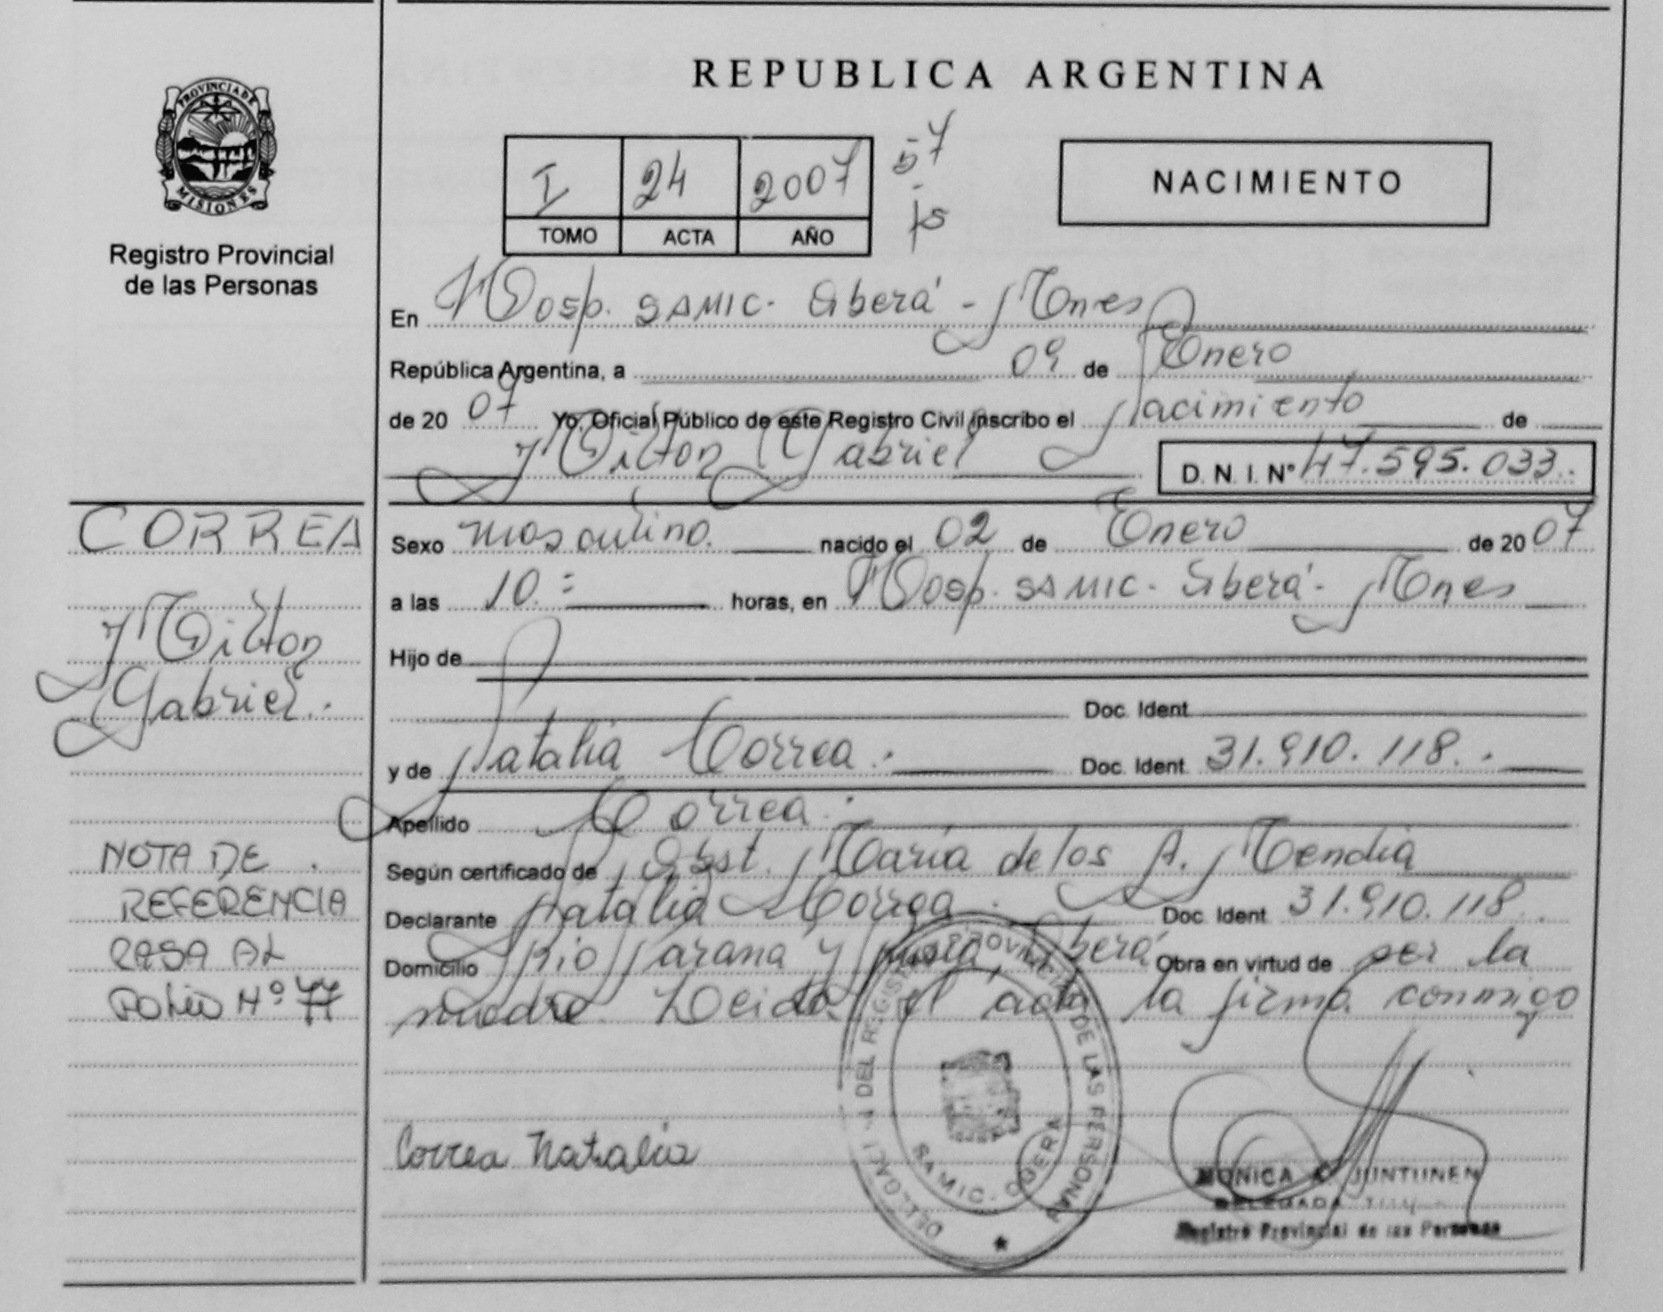 PROVINCIA DE
MISIONES
Registro Provincial
de las Personas
REPUBLICA ARGENTINA
I 24 2007
TOMO ACTA AÑO
57
js
NACIMIENTO
En Hosp. SAMIC. Oberá - Mnes
República Argentina, a 09 de Enero
de 20 07 Yo, Oficial Público de este Registro Civil inscribo el Nacimiento de
Milton Gabriel D. N. I. Nº 47.595.033.
CORREA
Milton
Gabriel.
NOTA DE
REFERENCIA
PASA AL
FOLIO Nº 77
Sexo masculino. nacido el 02 de Enero de 20 07
a las 10.= horas, en Hosp. SAMIC. Oberá - Mnes
Hijo de
Doc. Ident.
y de Natalia Correa. Doc. Ident. 31.910.118.
Apellido Correa.
Según certificado de Obst. María de los A. Mendia
Declarante Natalia Correa. Doc. Ident. 31.910.118.
Domicilio Río Paraná y Oberá Obra en virtud de ser la
madre. Leida el acta la firma conmigo
Correa Natalia
DEL REGISTRO PROVINCIAL DE LAS PERSONAS
SAMIC - OBERA
MONICA A. JUNTUNEN
DELEGADA
Registro Provincial de las Personas